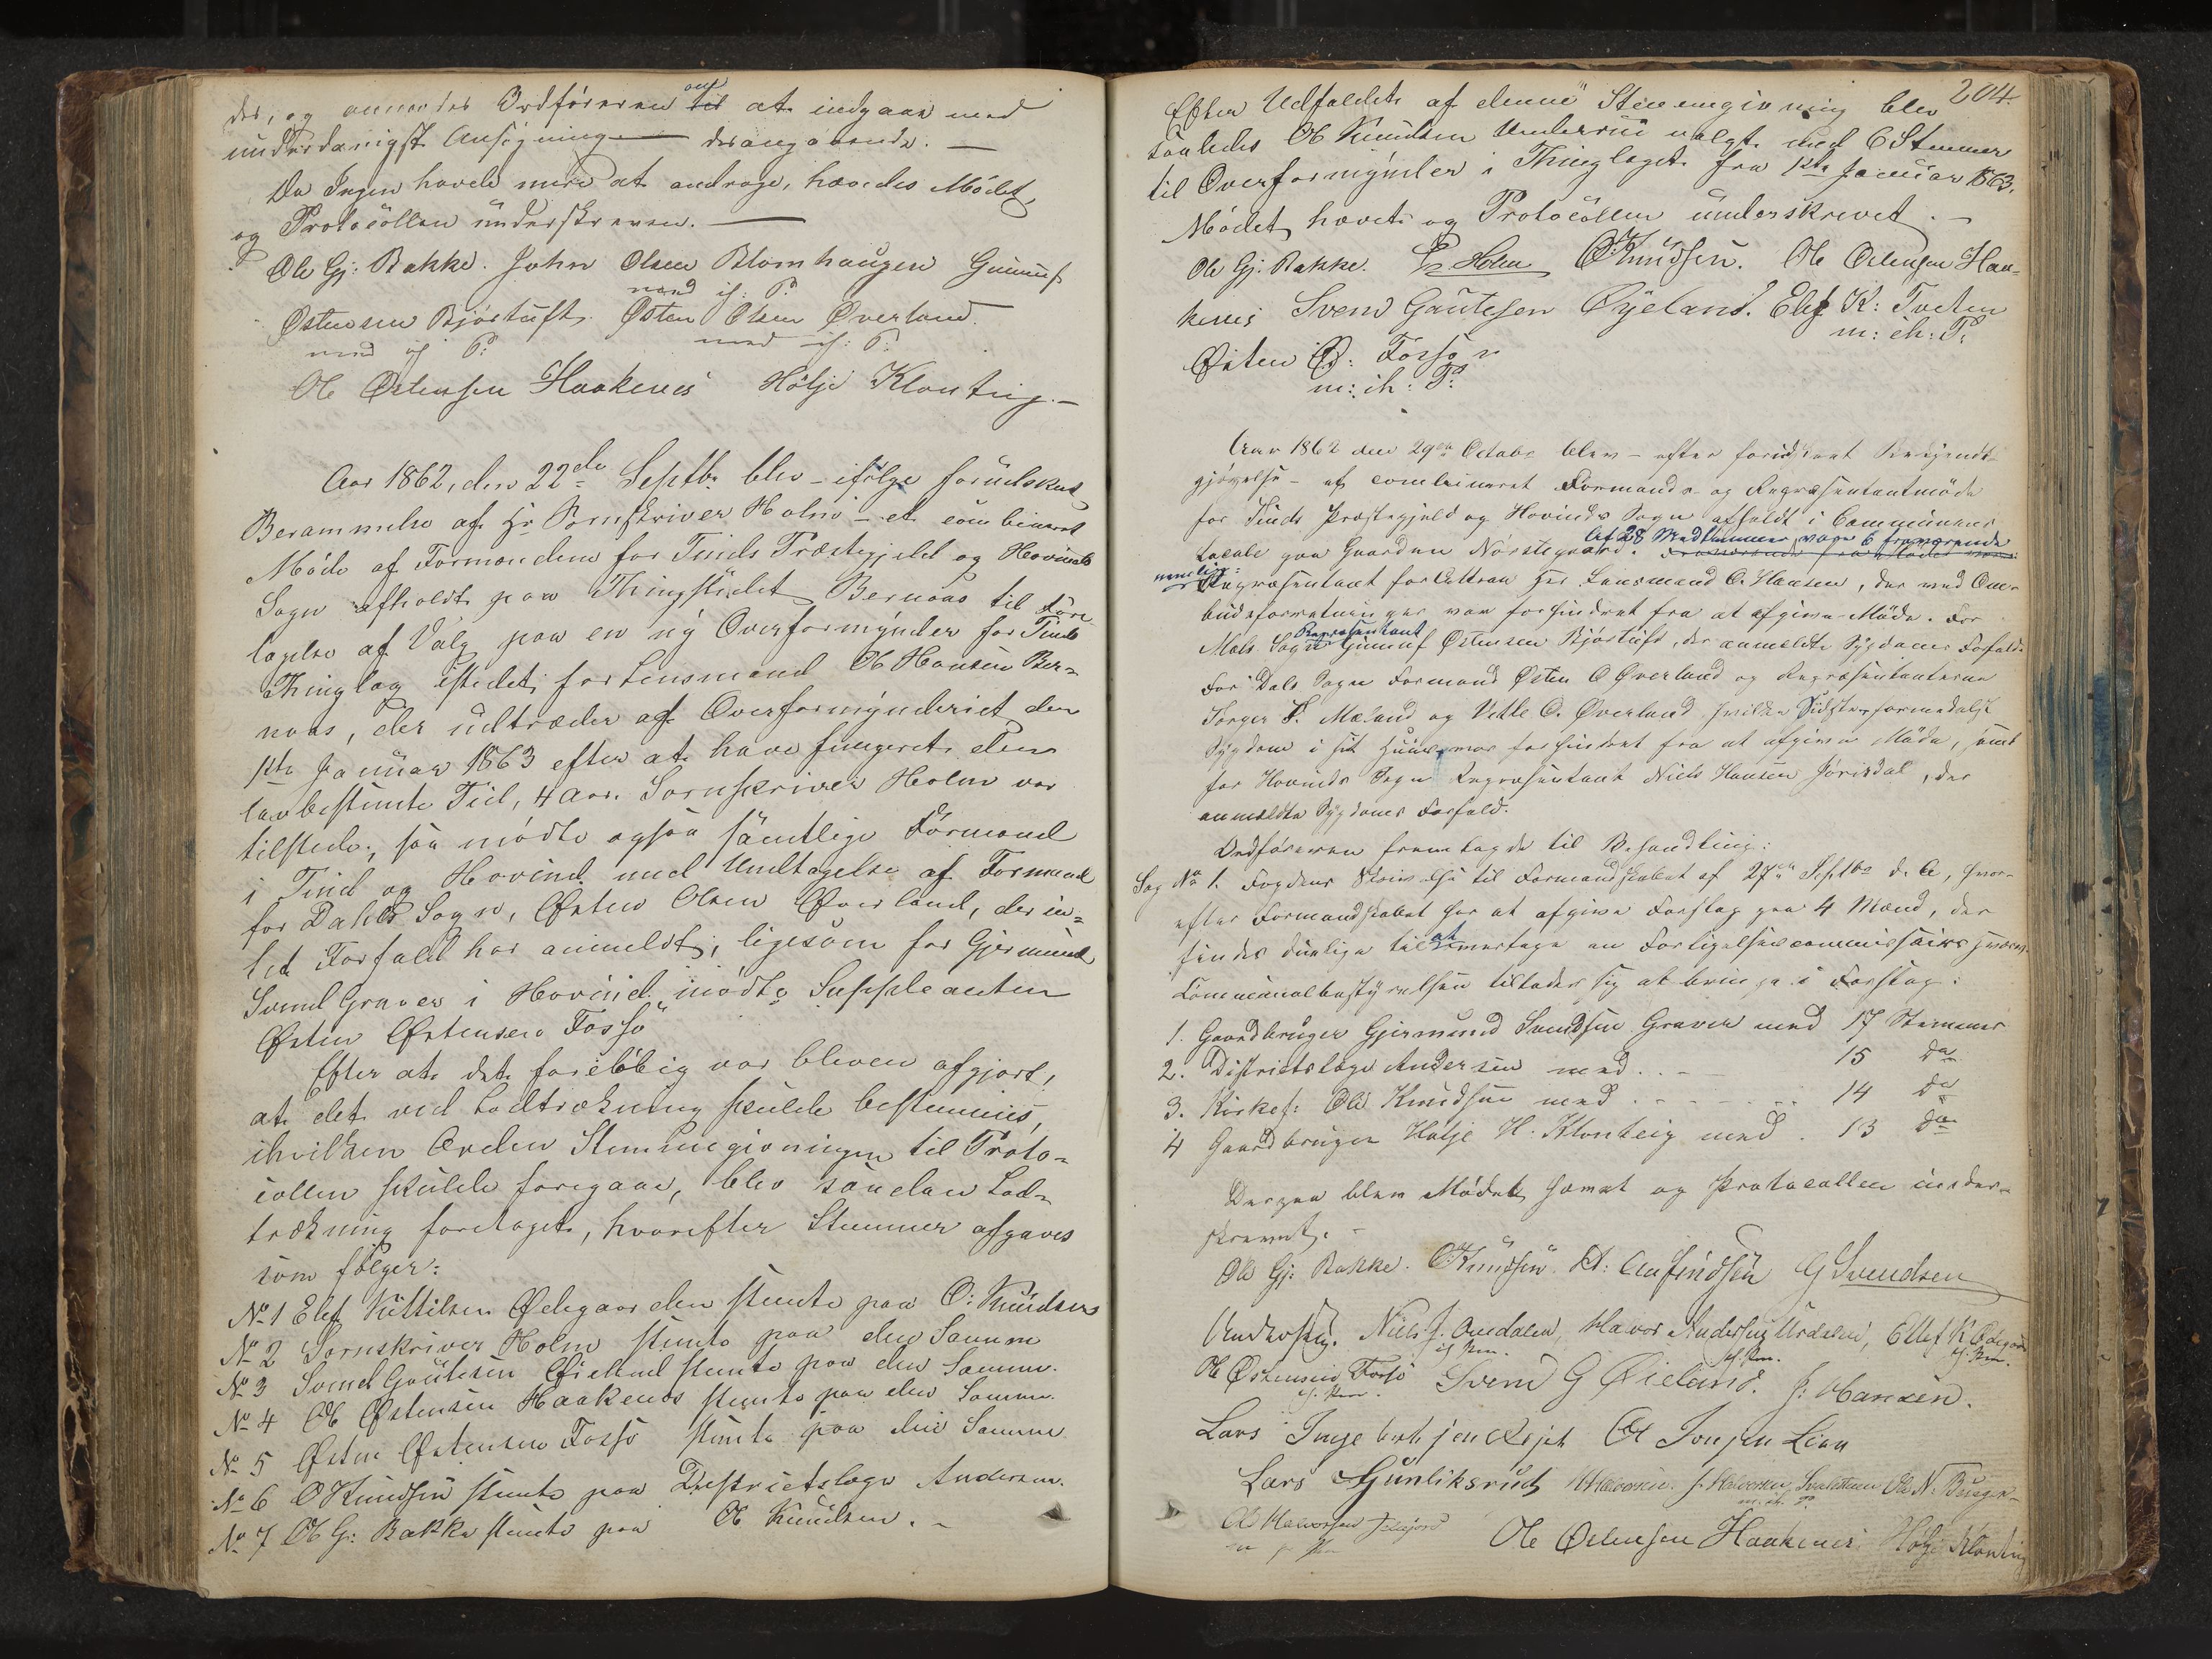 des, og anmodes Ordføreren om til at indgaae med
underdanigst Ansøgning desangaaende. —
Da Ingen havde mere at andrage, hævedes Mødet,
og Protocollen underskreven. —
Ole Gj: Bakke. John Olsen Blomhaugen Gunnuf
med if: P:
Østensen Bjørtuft. Østen Olsen Øverland.
med if P: med if: P:
Ole Østensen Haakenes Høljе Klonteig. —
Aar 1862, den 22de Septbr. blev – ifølge forudskeet
Berammelse af Hr Sorenskriver Holm – et combineret
Møde af Formændene for Tinds Præstegjeld og Hovinds
Sogn afholdt paa Thingstedet Bernaas til Fore-
tagelse af Valg paa en ny Overformynder for Tinds
Thinglag istedet for Lensmand Ole Hansen Ber-
naas, der udtræder af Overformynderiet den
1ste Januar 1863 efter at have fungeret den
lovbestemte Tid, 4 Aar. Sorenskriver Holm var
tilstede, saa mødte ogsaa samtlige Formænd
i Tind og Hovind med Undtagelse af Formand
for Dahls Sogn, Østen Olsen Øverland, der in-
tet Forfald har anmeldt, ligesom for Gjermund
Svends. Graver i Hovind mødte Suppleanten
Østen Østensen Fossø
Efter at det foreløbig var bleven afgjort,
at det ved Lodtrækning skulde bestemmes,
ihvilken Orden Stemmegivningen til Proto-
collen skulde foregaae, blev saadan Lod-
trækning foretaget, hvorefter Stemmer afgaves
som følger:
No 1 Elef Kittilsen Ødegaarden stemte paa O: Knudsen
No 2 Sorenskriver Holm stemte paa den Samme
No 3 Svend Gautesen Øieland stemte paa den Samme.
No 4 Ole Østensen Haakenes stemte paa den Samme.
No 5 Østen Østensen Fossø stemte paa den Samme.
No 6 O Knudsen stemte paa Districtslæge Andersen.
No 7 Ole G: Bakke stemte paa Ole Knudsen. –
204.
Efter Udfaldet af denne Stemmegivning blev
saaledes Ole Knudsen valgt med 6 Stemmer
til Overformynder i Thinglaget fra 1ste Januar 1863.
Mødet hævet og Protocollen underskrevet. —
Ole Gj. Bakke. Holm OKnudsen. Ole Østensen Haa-
kenes Svend Gautesen Øyeland. Elef K: Tveten
m: ih: P:
Østen Ø: Fossø
m: ih: P:
Aar 1862 den 29de Octobr blev – efter forudskeet Bekjendt-
gjørelse – et combineret Formands- og Repræsentantmøde
for Tinds Præstegjeld og Hovinds Sogn afholdt i Communens
Locale paa Gaarden Nørstegaard. Af 28 Medlemmer vare 6 fraværende
nemlig: Repræsentant for Attraa Hr Lensmand O. Hansen, der ved Om-
budsforretninger var forhindret fra at afgive Møde. For
Mæls Sogn Repræsentant Gunnuf Østensen Bjørtuft, der anmeldte Sygdoms Forfald.
For Dals Sogn Formand Østen O Øverland og Repræsentanterne
Torger T. Mæland og Vetle O. Øverland hvilken Sidste formedelst
Sygdom i sit Huus var forhindret fra at afgive Møde, samt
for Hovinds Sogn Repræsentant Niels Hansen Jørisdal, der
anmeldte Sygdoms Forfald.
Ordføreren fremlagde til Behandling:
Sag No 1. Fogdens Skrivelse til Formandskabet af 27de Septbr d. A, hvor-
efter Formandskabet har at afgive Forslag paa 4 Mænd, der
findes duelige til at modtage en Forligelsescommissairs
Communalbestyrelsen tillader sig at bringe i Forslag:
1. Gaardbruger Gjermund Svendsen Graver med 17 Stemmer
2. Districtslæge Andersen med . . – 15 do
3. Kirkes: Ole Knudsen med . - - - - . . 14 do
4 Gaardbruger Hølje H: Klonteig med . 13 do
Derpaa blev Mødet hævet og Protocollen under-
skrevet. –
Ole Gj: Bakke. OKnudsen. A: Aufindsen G Svendsen
Andersen. Niels J. Omdalen, Havor Andersen Urdalen, Ellef K Ødegaard
Ole Østensen Fossø Svend G Øieland. J. Hansen.
Lars Ingebretsen Ole Jonsen Lien
Lars Gunliksrud H Halvorsen. J. Halvorsen Ole N. Busgrd-
m. ih. P.
Ole Halvorsen
Ole Østensen Haakenes Hølje Klonteig